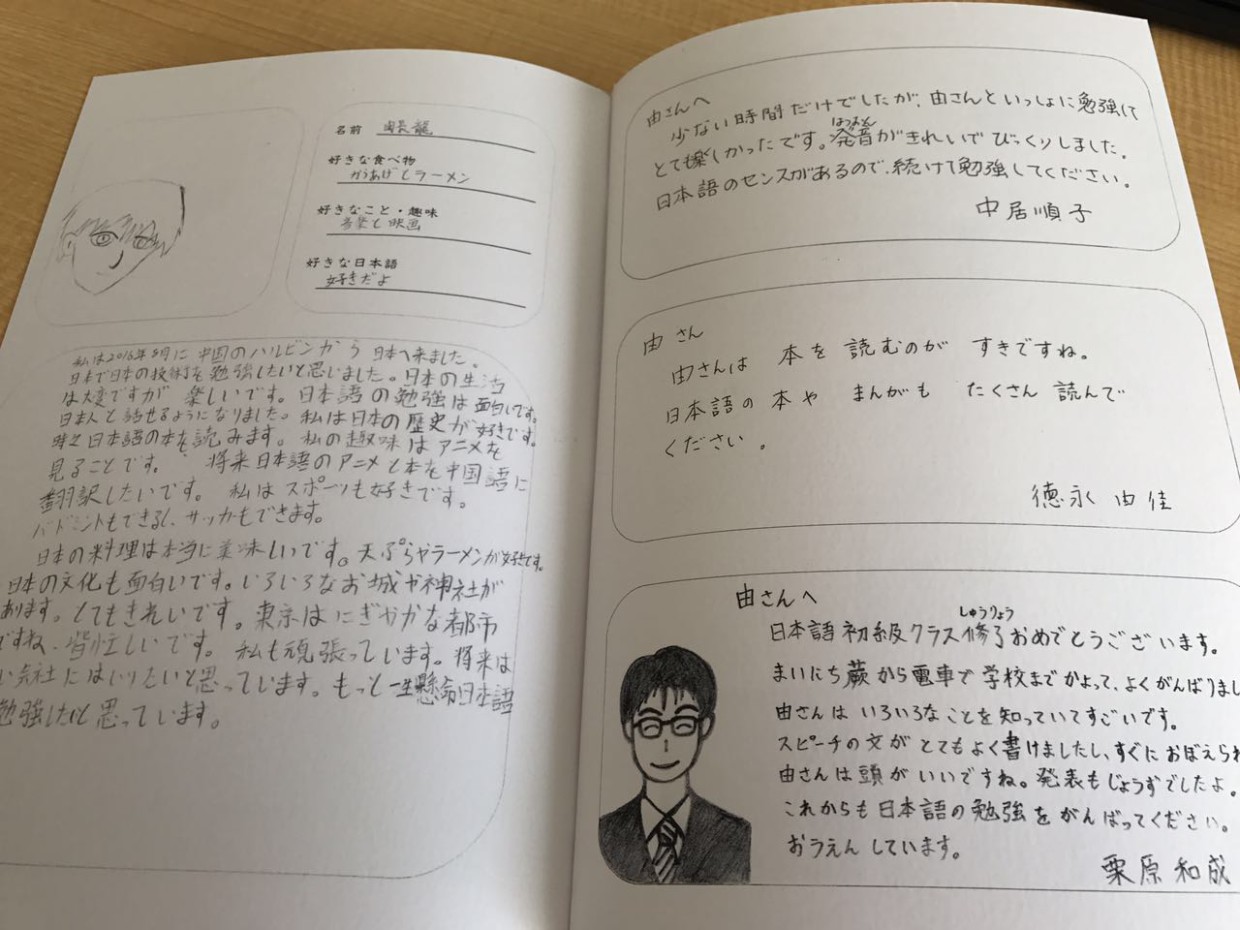 名前
好きな食べ物
からあげとラーメン
好きなこと・趣味
音楽と映画
好きな日本語
好きだよ
私は2016年8月に中国のハルビンから日本へ来ました。
日本で日本の技術を勉強したいと思いました。日本の生活
は大変ですが楽しいです。日本語の勉強は面白いです。
日本人と話せるようになりました。私は日本の歴史が好きです。
時々日本語の本を読みます。私の趣味はアニメを
見ることです。将来日本語のアニメと本を中国語に
翻訳したいです。私はスポーツも好きです。
バドミントもできるし、サッカもできます。
日本の料理は本当に美味しいです。天ぷらやラーメンが好きです。
日本の文化も面白いです。いろいろなお城や神社が
あります。とてもきれいです。東京はにぎやかな都市
ですね、皆忙しいです。私も頑張っています。将来は
い会社にはいりたいと思っています。もっと一生懸命日本語
勉強したいと思っています。
由さんへ
少ない時間だけでしたが、由さんといっしょに勉強して
とても楽しかったです。発音がきれいでびっくりしました。
はつおん
日本語のセンスがあるので、続けて勉強してください。
中居順子
由さん
由さんは 本を 読むのが すきですね。
日本語の 本や まんがも たくさん 読んで
ください。
徳永 由佳
由さんへ
しゅうりょう
日本語初級クラス修了おめでとうございます。
まいにち蕨から電車で学校までかよって、よくがんばりまし
由さんはいろいろなことを知っていてすごいです。
スピーチの文がとてもよく書けましたし、すぐにおぼえられ
由さんは頭がいいですね。発表もじょうずでしたよ。
これからも日本語の勉強をがんばってください。
おうえんしています。
栗原和成